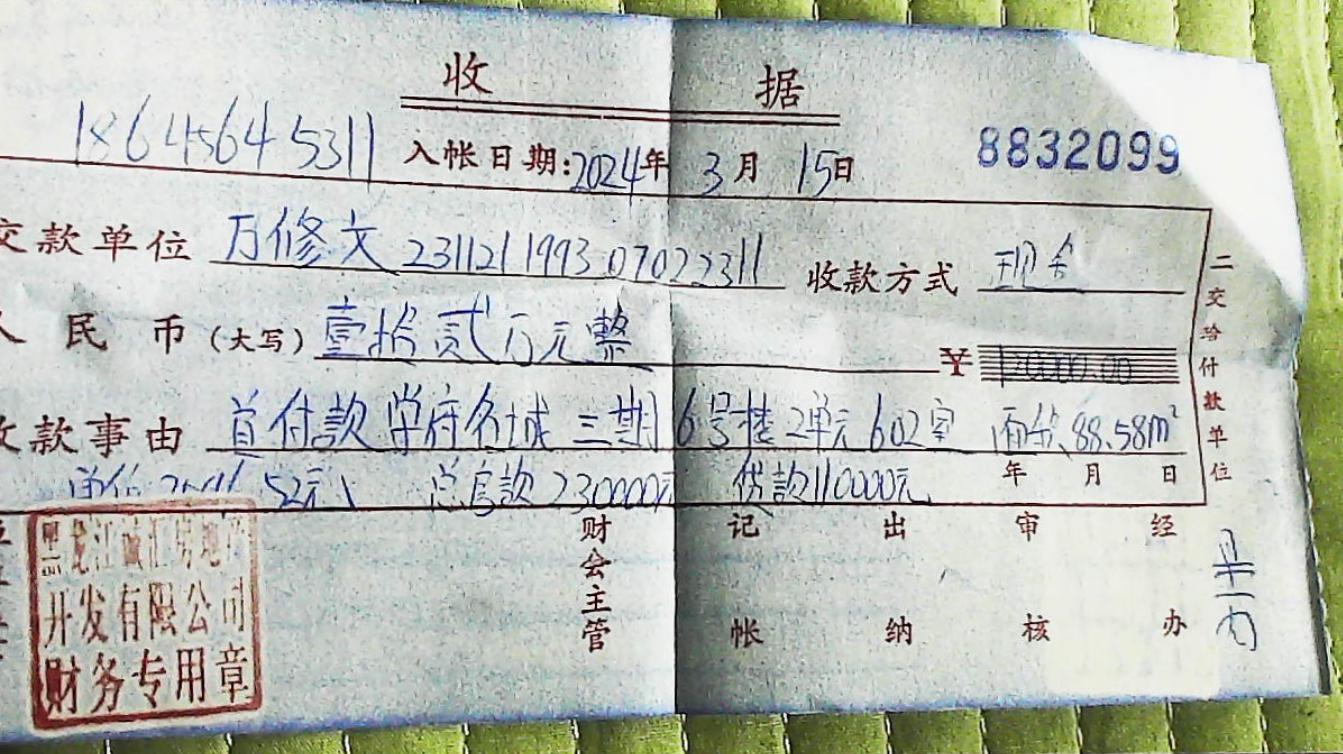 收 据
18645645311 入帐日期:2024年 3月 15日 8832099
交款单位 万修文 231121199307022311 收款方式 现金
人民币(大写) 壹拾贰万元整 ¥ 120000.00
收款事由 首付款 学府名城 三期 6号楼 2单元 602室 面积 88.58m²
单价 52元 总房款 230000元 贷款110000元 年 月 日
二交给付款单位
财会主管 记帐 出纳 审核 经办
黑龙江诚汇房地产
开发有限公司
财务专用章